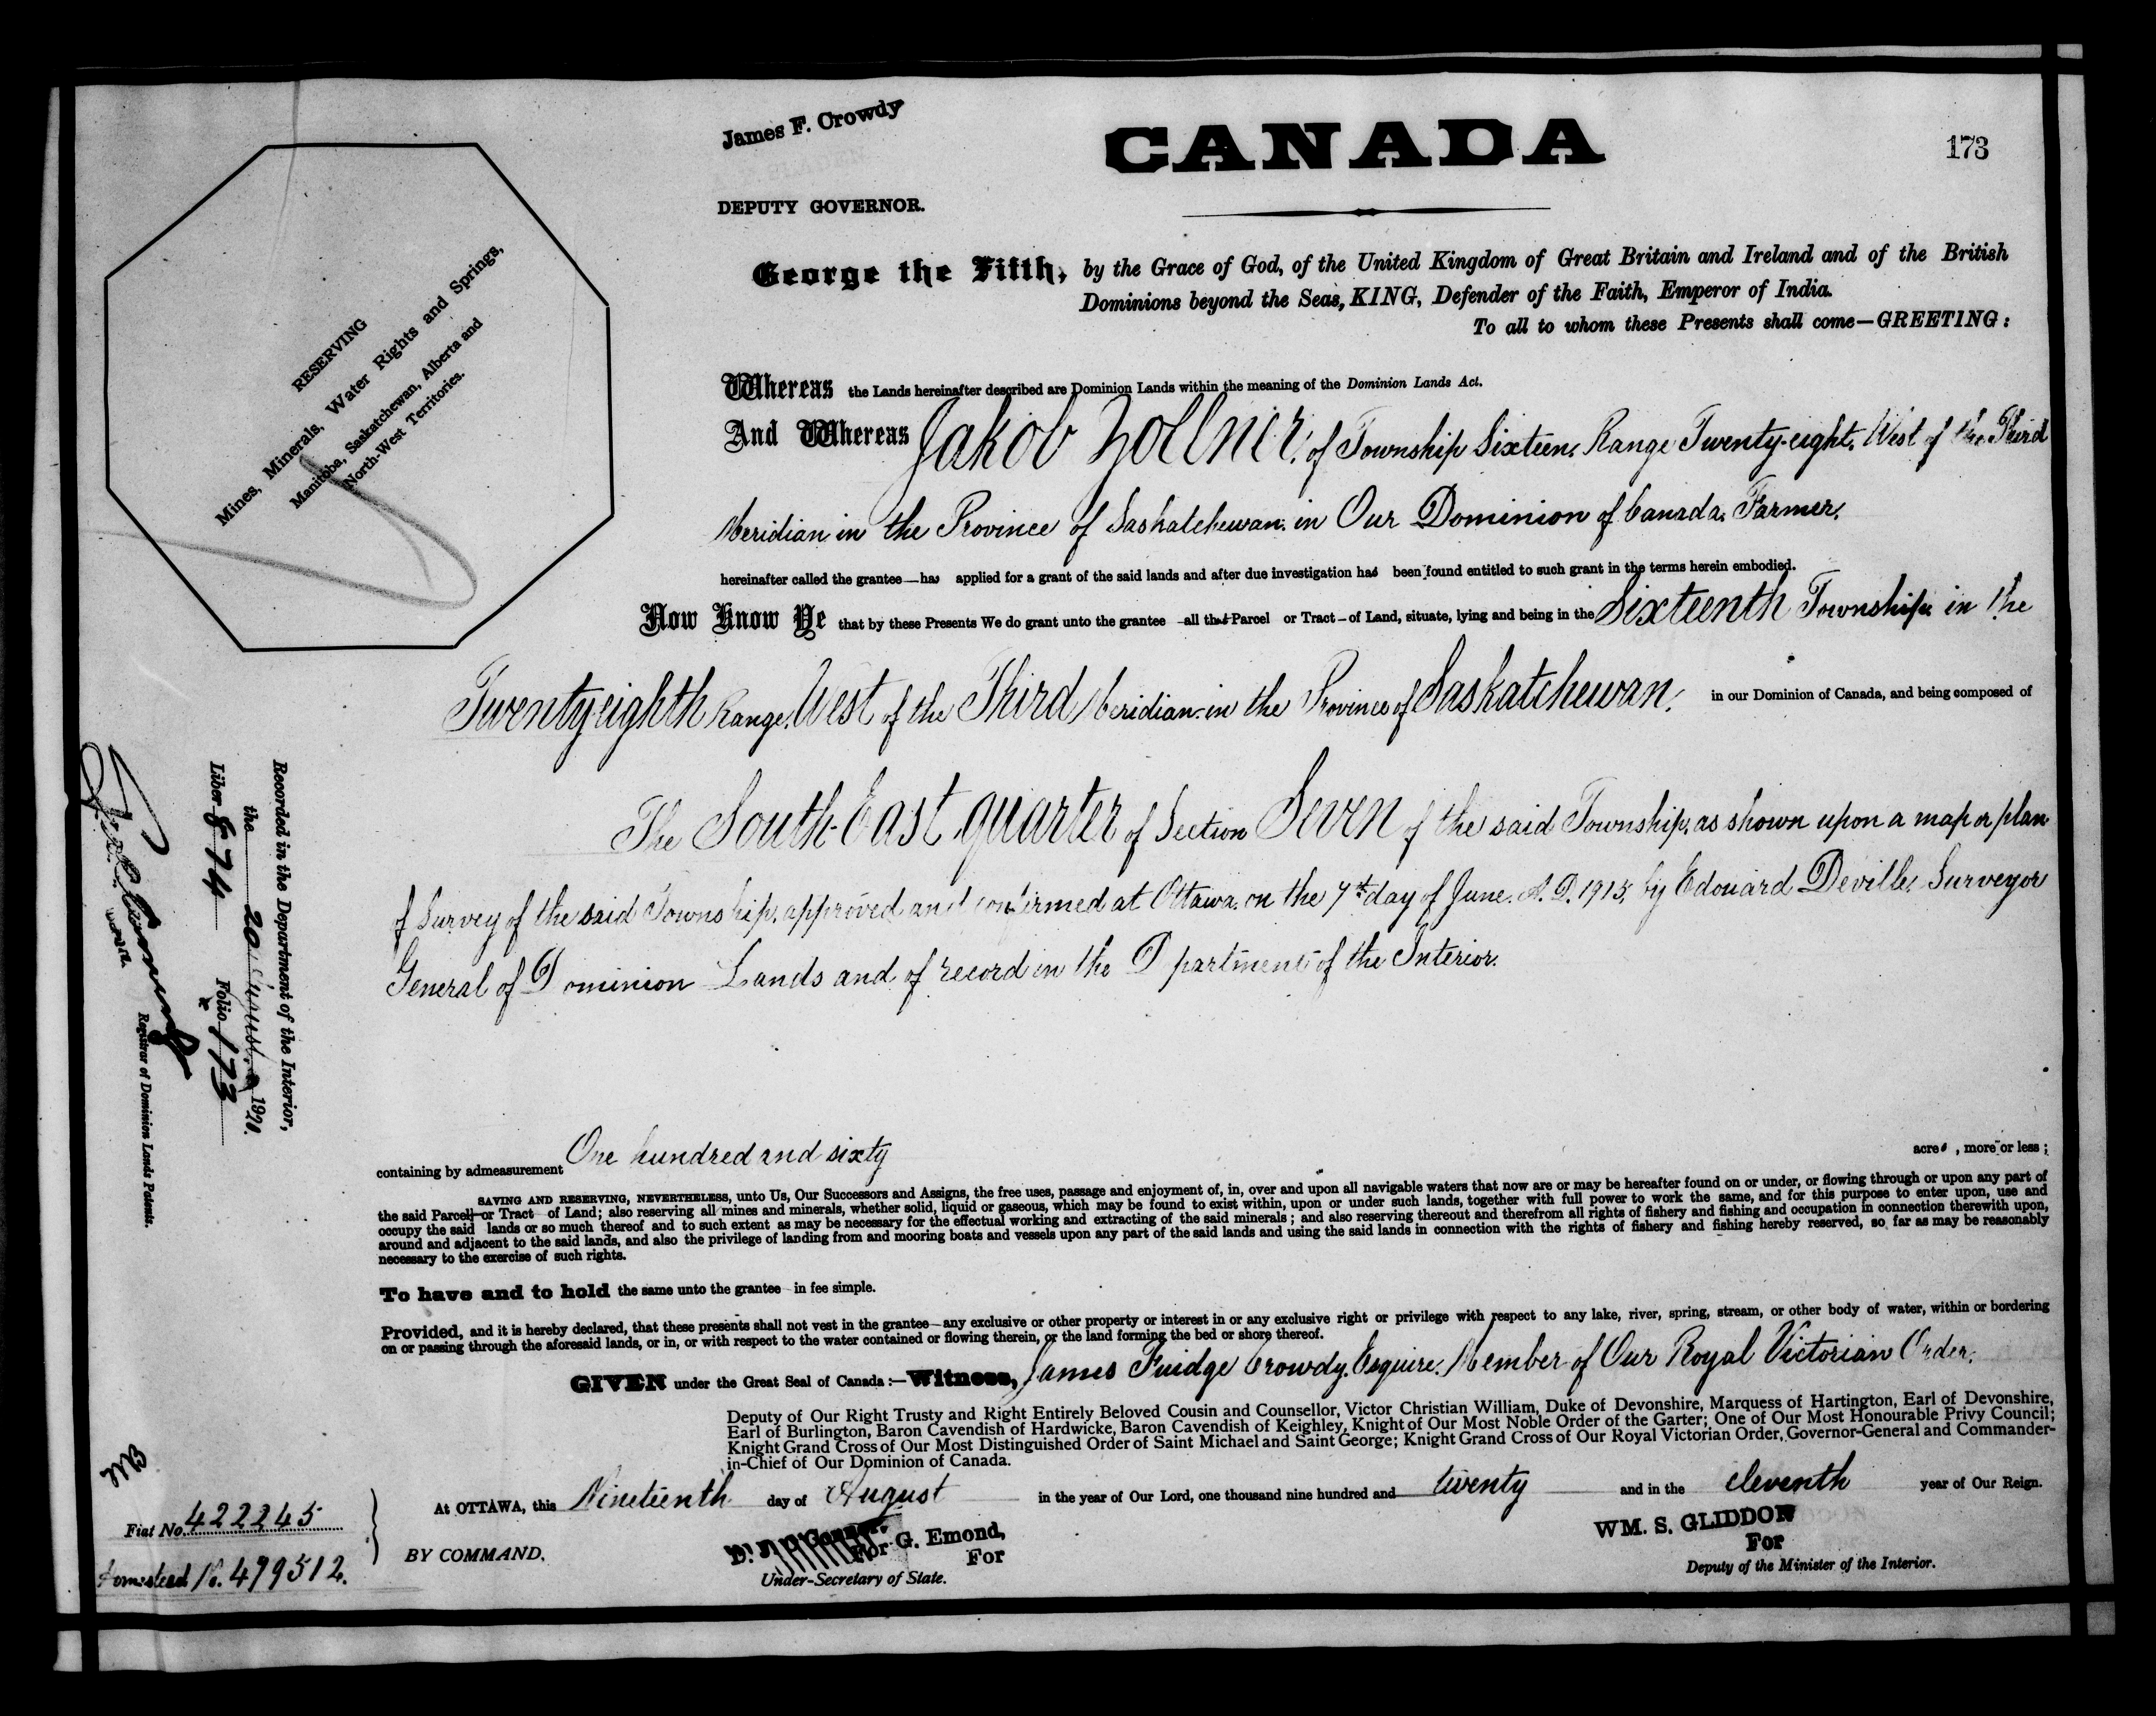 James F. Crowdy
CANADA
173
DEPUTY GOVERNOR.
George the Fifth, by the Grace of God, of the United Kingdom of Great Britain and Ireland and of the British
Dominions beyond the Seas, KING, Defender of the Faith, Emperor of India.
To all to whom these Presents shall come—GREETING:
RESERVING
Mines, Minerals, Water Rights and Springs,
Manitoba, Saskatchewan, Alberta and
North-West Territories.
Whereas the Lands hereinafter described are Dominion Lands within the meaning of the Dominion Lands Act.
And Whereas Jakob Zollner, of Township Sixteen, Range Twenty-eight, West of the Third
Meridian in the Province of Saskatchewan, in Our Dominion of Canada, Farmer,
hereinafter called the grantee—has applied for a grant of the said lands and after due investigation has been found entitled to such grant in the terms herein embodied.
Now Know Ye that by these Presents We do grant unto the grantee —all that Parcel or Tract — of Land, situate, lying and being in the Sixteenth Township in the
Twenty eighth Range, West of the Third Meridian in the Province of Saskatchewan, in our Dominion of Canada, and being composed of
The South East quarter of Section Seven of the said Township, as shown upon a map or plan
of Survey of the said Township, approved and confirmed at Ottawa, on the 7th day of June, A.D. 1915, by Edouard Deville, Surveyor
General of Dominion Lands and of record in the Department of the Interior.
Recorded in the Department of the Interior,
the 20 August, 1920.
Liber 874 Folio 173
Registrar of Dominion Lands Patents.
containing by admeasurement One hundred and sixty acres, more or less;
SAVING AND RESERVING, NEVERTHELESS, unto Us, Our Successors and Assigns, the free uses, passage and enjoyment of, in, over and upon all navigable waters that now are or may be hereafter found on or under, or flowing through or upon any part of
the said Parcel or Tract of Land; also reserving all mines and minerals, whether solid, liquid or gaseous, which may be found to exist within, upon or under such lands, together with full power to work the same, and for this purpose to enter upon, use and
occupy the said lands or so much thereof and to such extent as may be necessary for the effectual working and extracting of the said minerals; and also reserving thereout and therefrom all rights of fishery and fishing and occupation in connection therewith upon,
around and adjacent to the said lands, and also the privilege of landing from and mooring boats and vessels upon any part of the said lands and using the said lands in connection with the rights of fishery and fishing hereby reserved, so far as may be reasonably
necessary to the exercise of such rights.
To have and to hold the same unto the grantee in fee simple.
Provided, and it is hereby declared, that these presents shall not vest in the grantee—any exclusive or other property or interest in or any exclusive right or privilege with respect to any lake, river, spring, stream, or other body of water, within or bordering
on or passing through the aforesaid lands, or in, or with respect to the water contained or flowing therein, or the land forming the bed or shore thereof.
GIVEN under the Great Seal of Canada:—Witness, James Fuidge Crowdy, Esquire, Member of Our Royal Victorian Order,
Deputy of Our Right Trusty and Right Entirely Beloved Cousin and Counsellor, Victor Christian William, Duke of Devonshire, Marquess of Hartington, Earl of Devonshire,
Earl of Burlington, Baron Cavendish of Hardwicke, Baron Cavendish of Keighley, Knight of Our Most Noble Order of the Garter; One of Our Most Honourable Privy Council;
Knight Grand Cross of Our Most Distinguished Order of Saint Michael and Saint George; Knight Grand Cross of Our Royal Victorian Order, Governor-General and Commander-
in-Chief of Our Dominion of Canada.
At OTTAWA, this Nineteenth day of August in the year of Our Lord, one thousand nine hundred and twenty and in the eleventh year of Our Reign.
Fiat No. 422245
Homestead No. 499512.
BY COMMAND,
G. Emond,
For
Under-Secretary of State.
WM. S. GLIDDON
For
Deputy of the Minister of the Interior.